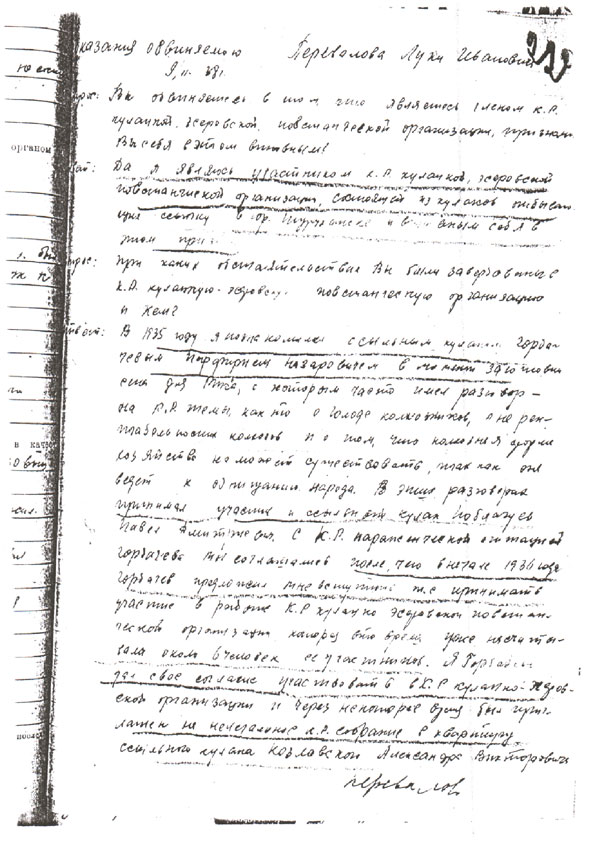 казания обвиняемого Перевалова Луки Ивановича
212
9/II. 38 г.
рос: Вы обвиняетесь в том что являетесь членом к.р.
кулацкой, эсеровской, повстанческой организации, признаете
Вы себя в этом виновным?
органом
вет: Да я являюсь участником к.р. кулацкой, эсеровской
повстанческой организации, состоящей из кулаков отбываю
щих ссылку в и виновным себя в
этом приз
рос: При каких обстоятельствах Вы были завербованы в
К.Р. кулацкую-эсеровскую повстанческую организацию
и кем?
твет: В 1935 году я познакомился с ссыльным кулаком Горба-
чевым Порфирием Назаровичем в момент заготовки
сена для с которым часто имел разговор
на к.р. темы, как то о голоде колхозников, о не рен-
табельности колхозов и о том, что колхозная форма
в качес
хозяйства не может существовать, так как она
ведет к обнищанию народа. В этих разговорах
принимал участие и ссыльный кулак
Павел Дмитриевич. С к.р. пораженческой агитацией
Горбачева мы соглашались после чего в начале 1936 года
Горбачев предложил мне вступить т.е. принимать
участие в работе к.р. кулацко эсеровской повстан-
ческой организации которая в то время уже насчиты-
вала около 6 человек ее участников. Я Горбачеву
дал свое согласие участвовать в К.Р. кулацко-эсеров-
ской организации и через некоторое время был приг-
лашен на нелегальное к.р. собрание в квартиру
ссыльного кулака Козлавской Александра Викторовича
Перевалов